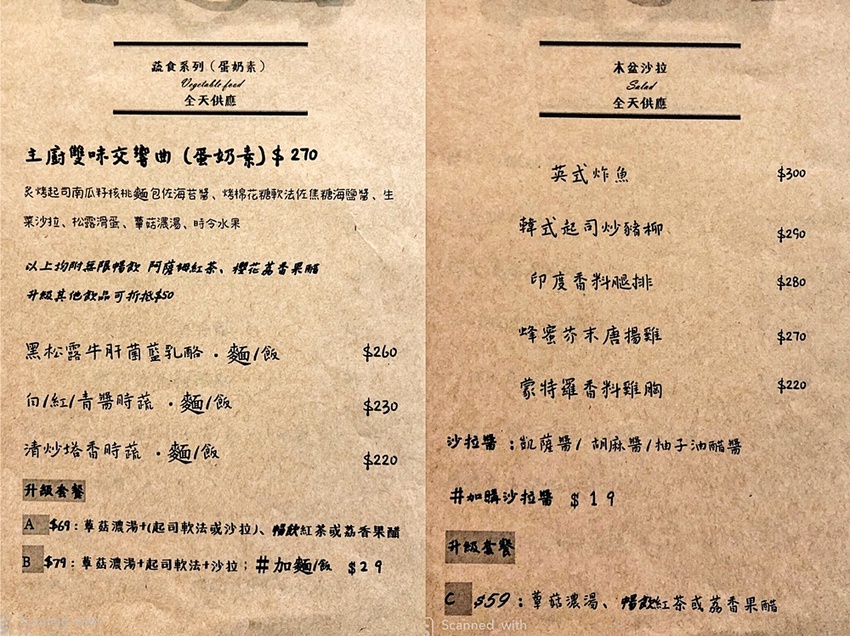 蔬食系列（蛋奶素）
Vegetable food
全天供應
主廚雙味交響曲 (蛋奶素) $270
炙烤起司南瓜籽核桃麵包佐海苔醬、烤棉花糖軟法佐焦糖海鹽醬、生
菜沙拉、松露滑蛋、蕈菇濃湯、時令水果
以上均附無限暢飲 阿薩姆紅茶、櫻花荔香果醋
升級其他飲品可折抵$50
黑松露牛肝菌藍乳酪・麵/飯 $260
白/紅/青醬時蔬・麵/飯 $230
清炒塔香時蔬・麵/飯 $220
升級套餐
A $69：蕈菇濃湯+(起司軟法或沙拉)、暢飲紅茶或荔香果醋
B $79：蕈菇濃湯+起司軟法+沙拉；#加麵/飯 $29
木盆沙拉
Salad
全天供應
英式炸魚 $300
韓式起司炒豬柳 $290
印度香料腿排 $280
蜂蜜芥末唐揚雞 $270
蒙特羅香料雞胸 $220
沙拉醬：凱薩醬/胡麻醬/柚子油醋醬
#加購沙拉醬 $19
升級套餐
C $59：蕈菇濃湯、暢飲紅茶或荔香果醋
Scanned with
Scanned with